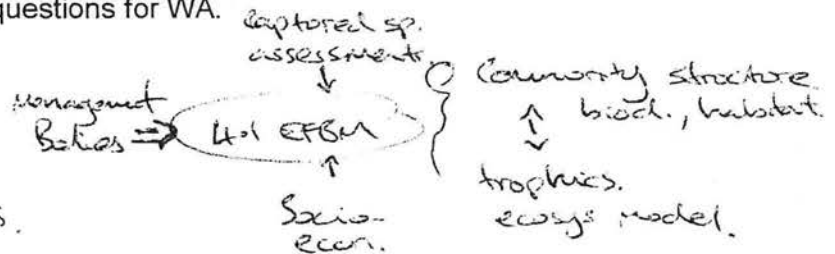 questions for WA.
captured sp.
assessments.
Management
Bodies ⇒
4.1 EFBM
Socio-
econ.
Community structure
biod., habitat.
trophics.
ecosys model.
s.